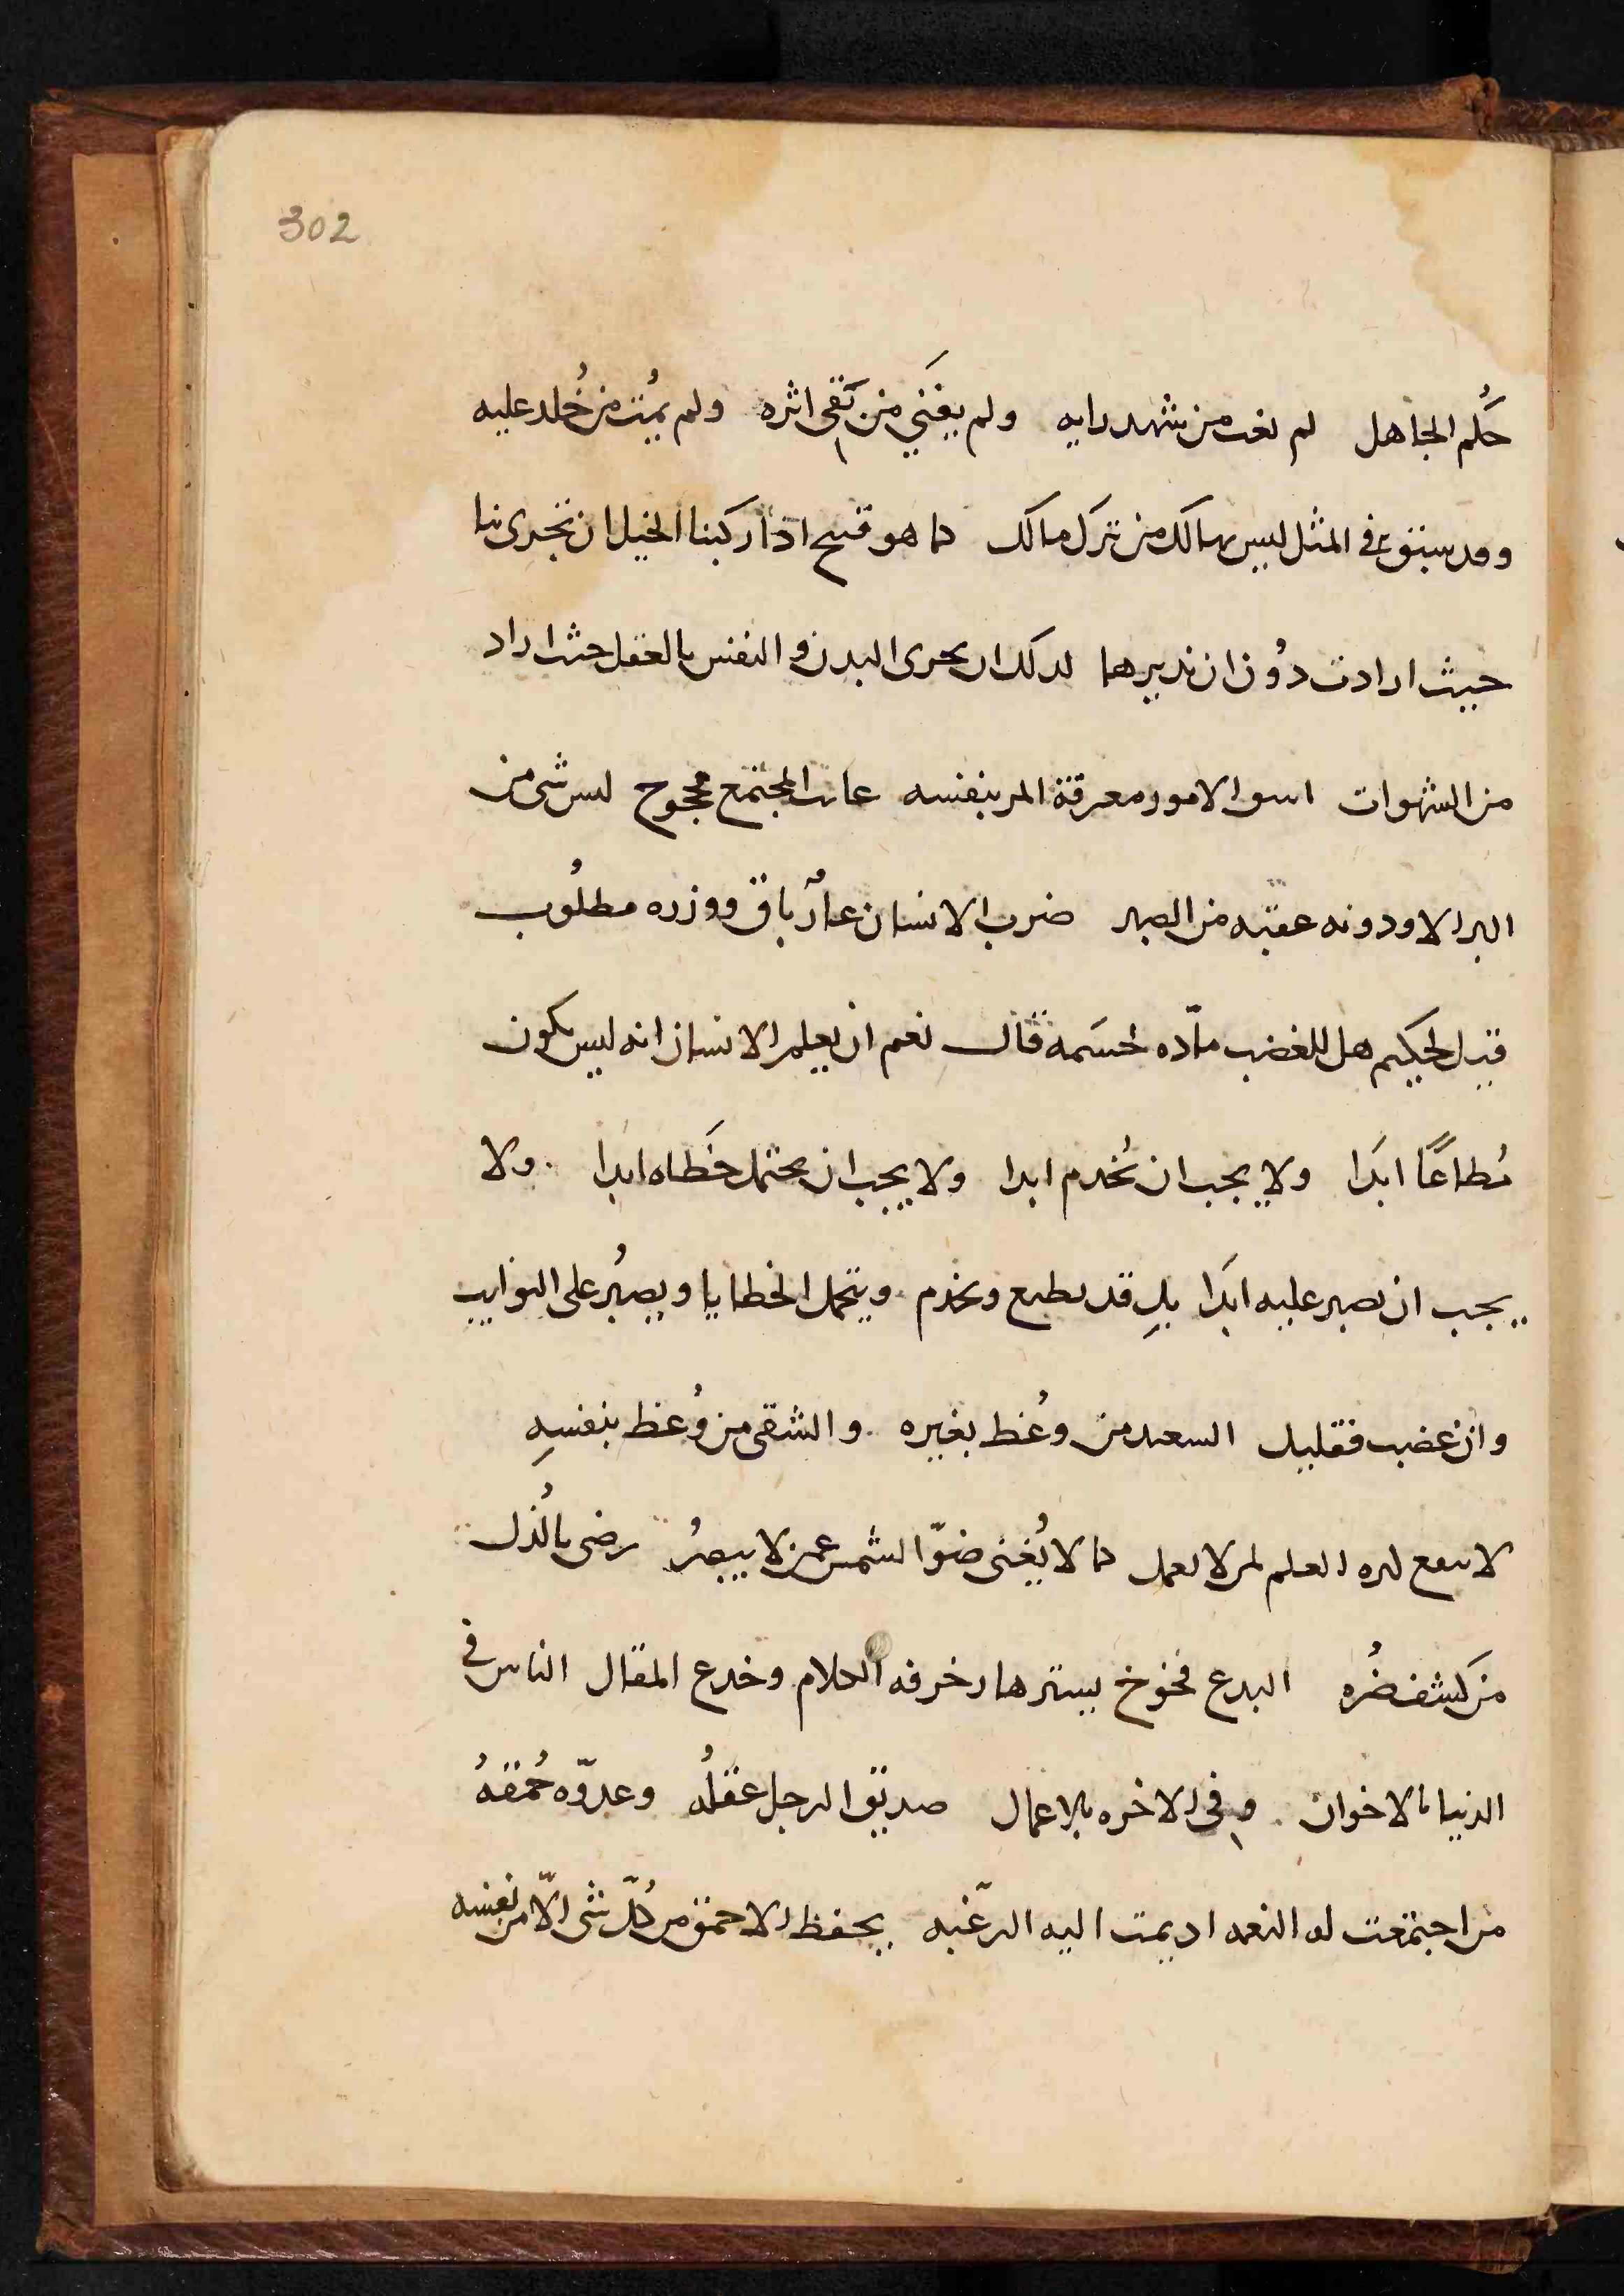 302
حكم الجاهل لم يغب من شهد رايه ولم يفنى من بقى اثره ولم يمُت من خُلد عليه
وقد سبق في المثل ليس بهالك من ترك مالك كما هو قبيح اذا ركبنا الخيل ان تجرى بنا
حيث ارادت دُون ان ندبرها كذلك ان يجرى البدن و النفس بالعقل حيث اراد
من الشهوات اسوا الامور معرفة المر بنفسه المجتمع محجوج ليس شى من
البر الا ودونه عقبه من الصبر ضرب الانسان عارٌ باق ووزره مطلُوب
قيل لحكيم هل للغضب مادّه لحسَمه قال نعم ان يعلم الانسان انه ليس يكون
مُطاعًا ابدَا ولا يجب ان يُخدم ابدا ولا يجب ان يحتمل خَطاه ابدا ولا
يجب ان يصبر عليه ابدَا بلِ قد يطيع ويخدم ويتحمل الخطايا ويصبُر على النوايب
وان غضب فقليل السعيد من وعُظ بغيره والشقى من وُعظ بنفسهِ
لا ينفع كثره العلم لمن لا يعمل كما لا يُغنى ضوّ الشمس عمن لا يبصرُ رضى بالُذل
من كشف ضُره البدع فخوخ يسترها زخرفه الكلام وخدع المقال الناس في
الدنيا بالاخوان وفى الاخره بالاعمال صديق الرجل عقلُه وعدوّه حُمقهُ
من اجتمعت له النعمه اديمت اليه الرغبه يحفظ الاحمق من كُلّ شى الّا من نفسه